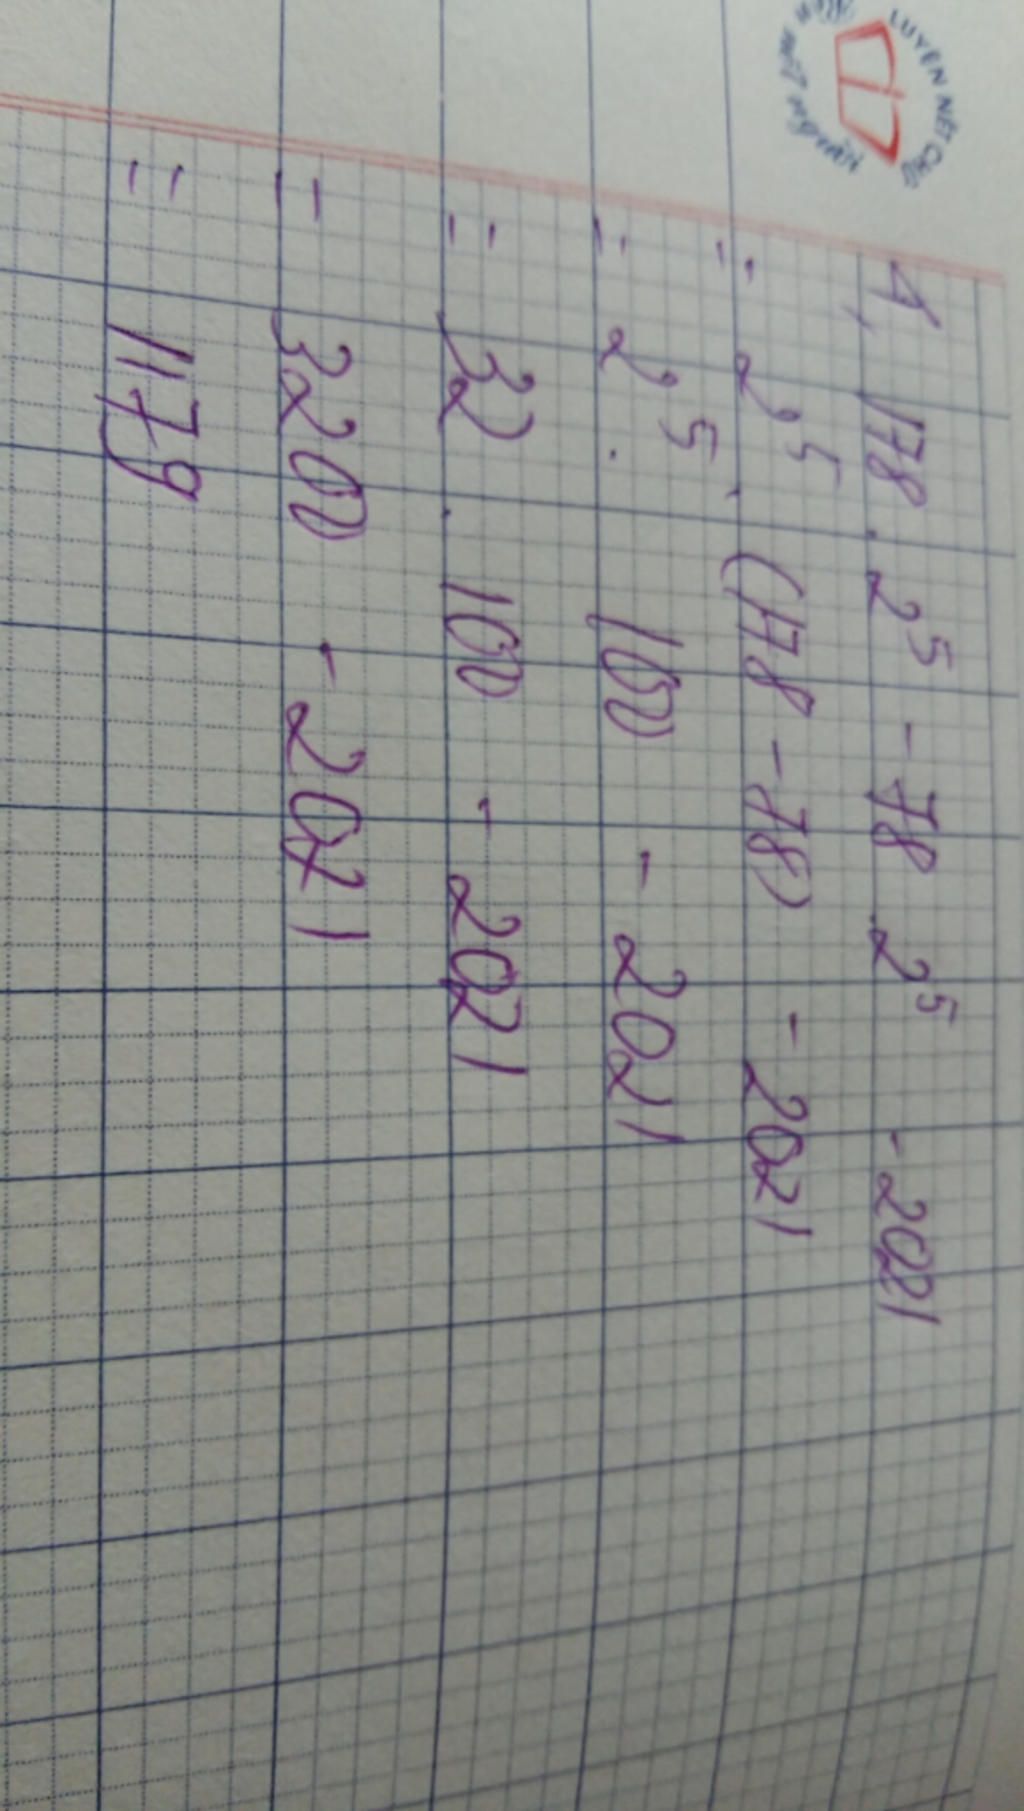 LUYỆN NÉT CHỮ
nết người
1, 178 . 2⁵ - 78 . 2⁵ - 2021
= 2⁵ . (178 - 78) - 2021
= 2⁵ . 100 - 2021
= 32 . 100 - 2021
= 3200 - 2021
= 1179